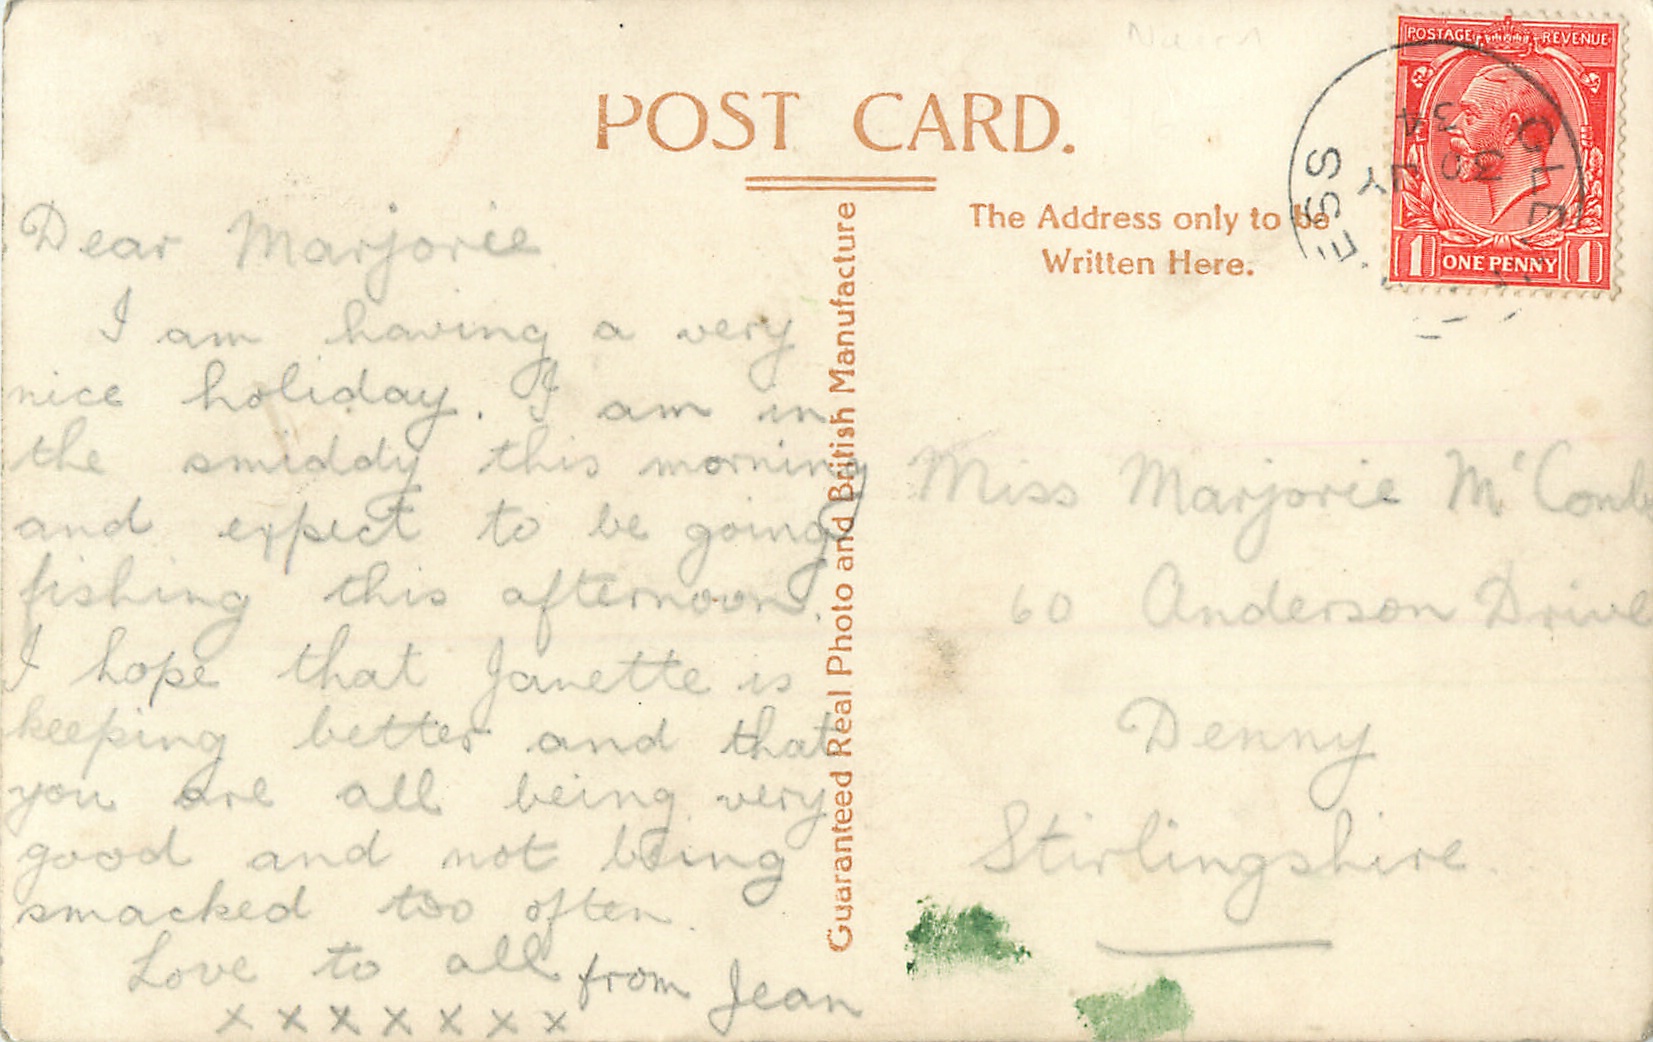 POST CARD.
The Address only to be
Written Here.
Guaranteed Real Photo and British Manufacture
Dear Marjorie
I am having a very
nice holiday. I am in
the smiddy this morning
and expect to be going
fishing this afternoon.
I hope that Janette is
keeping better and that
you are all being very
good and not being
smacked too often.
Love to all from Jean
x x x x x x x
Miss Marjorie Mc
60 Anderson Drive
Denny
Stirlingshire.
POSTAGE REVENUE
1 ONE PENNY 1
30 JY
34